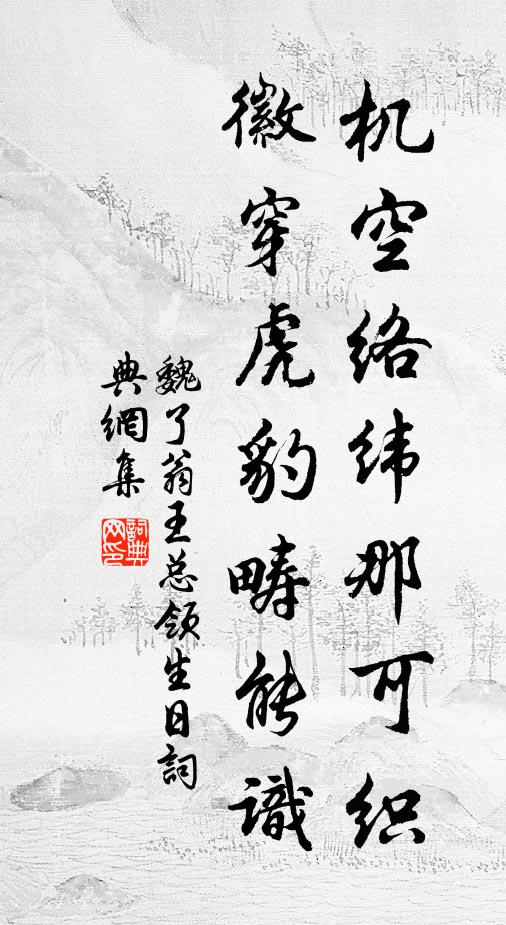 机空络纬那可织
徽穿虎豹畴能識
魏了翁王总领生日詞
典網集
詞典网印